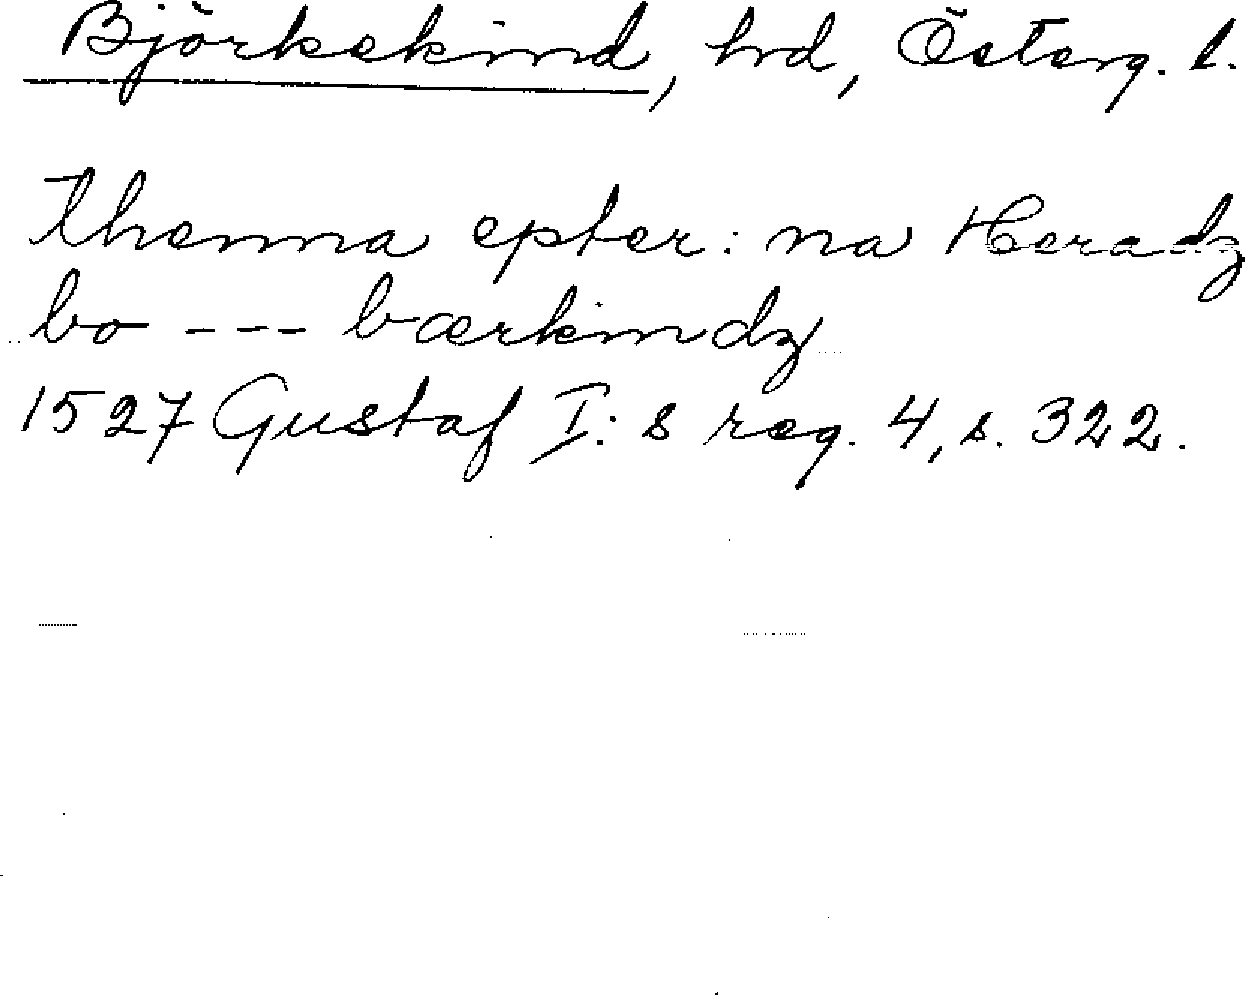 Björkekind, hrd, Österg. l.
thenna epter: na Heradz
bo --- bærkindz
1527 Gustaf I: s reg. 4, s. 322.